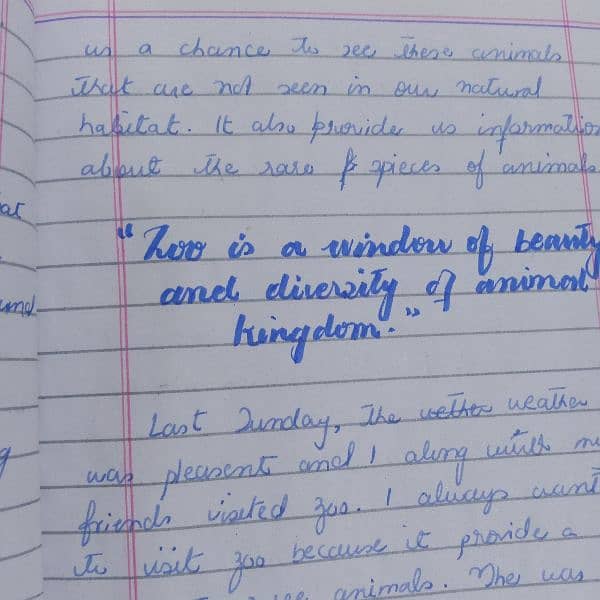 us a chance to see these animals
that are not seen in our natural
habitat. It also provide us information
about the rare & spieces of animals
ar
"Zoo is a window of beauty
and diversity of animal
und
kingdom."
Last Sunday, the wether weather
was pleasent and I along with m
g
friends visited zoo. I always want
to visit zoo because it provide a
animals. The was